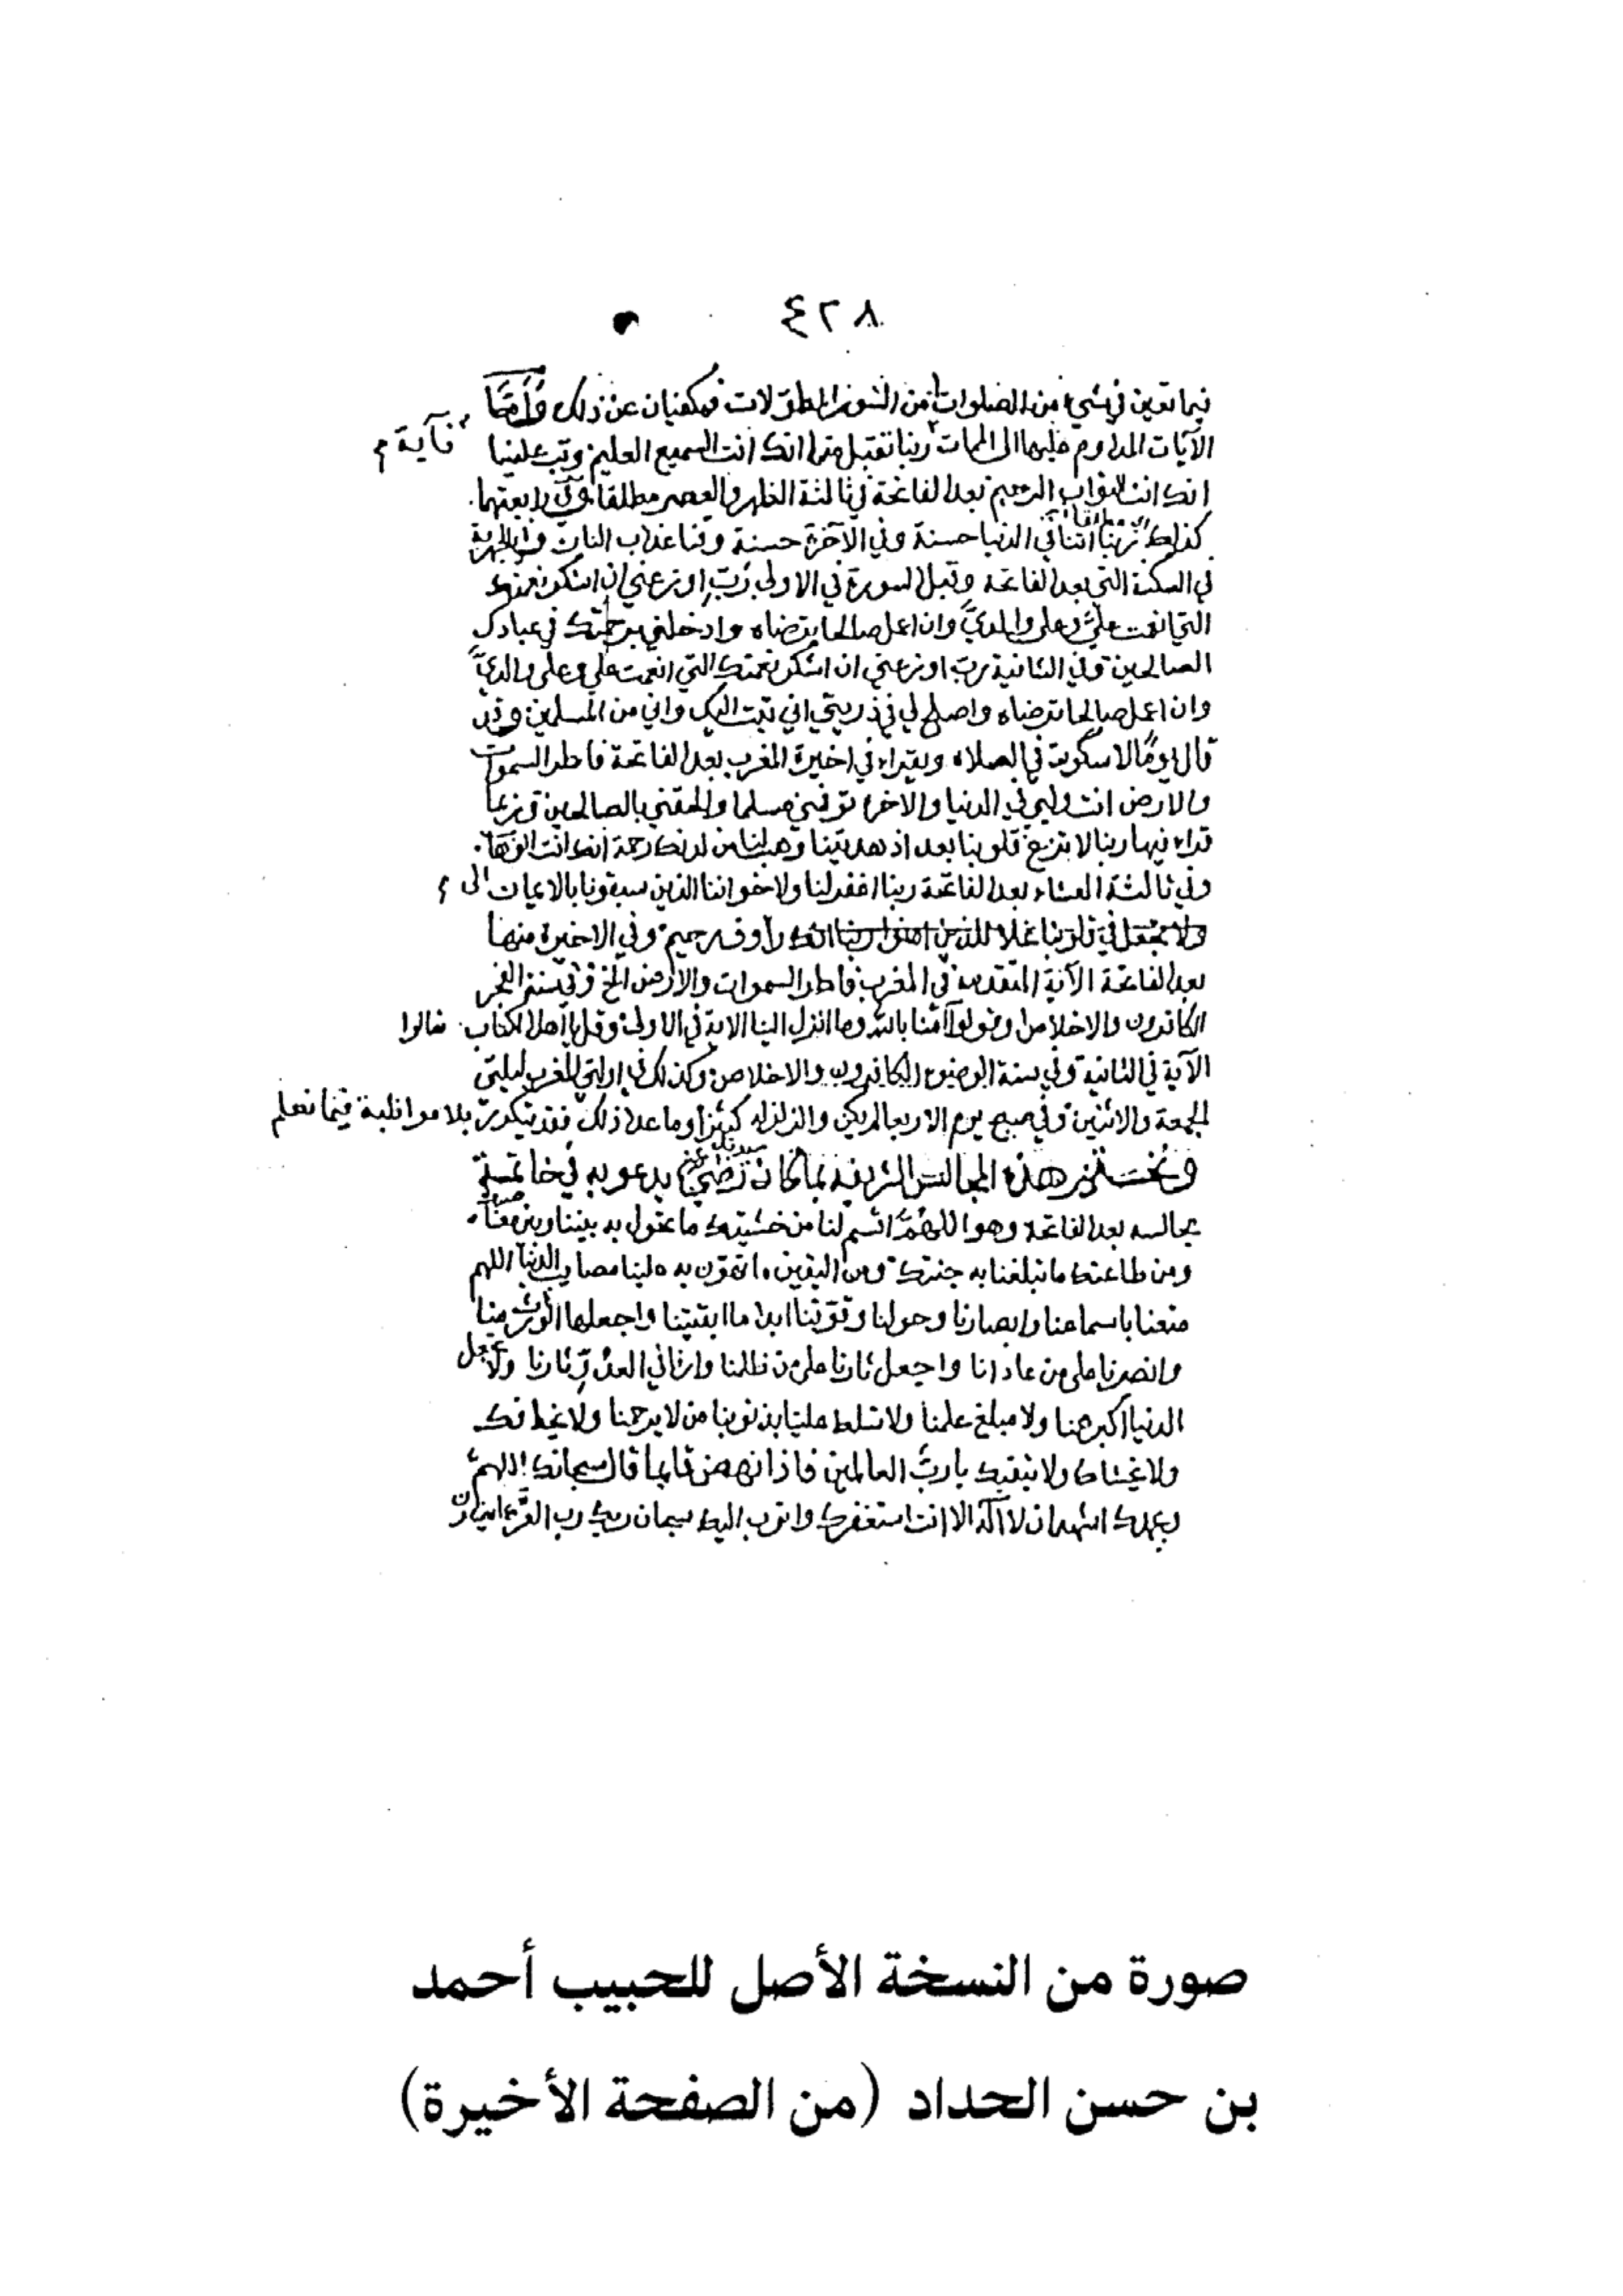 ٤٢٨
فيما تعين في شيء من الصلوات من السور المطولات فيكفيان عن ذلك وأما
الآيات المداوم عليها الى الممات ربنا تقبل منا انك انت السميع العليم وتب علينا فآية م
انك انت التواب الرحيم بعد الفاتحة في ثالثة الظهر والعصر مطلقا وفي رابعتهما
كذلك ربنا آتنا في الدنيا حسنة وفي الآخرة حسنة وقنا عذاب النار وفي الجهرية
في السكتة التي بعد الفاتحة وقبل السورة في الاولى رب اوزعني ان اشكر نعمتك
التي انعمت علي وعلى والدي وان اعمل صالحا ترضاه وادخلني برحمتك في عبادك
الصالحين وفي الثانية رب اوزعني ان اشكر نعمتك التي انعمت علي وعلى والدي
وان اعمل صالحا ترضاه واصلح لي في ذريتي اني تبت اليك واني من المسلمين وقد
قال يوما لا سكوت في الصلاه ويقراء في اخيرة المغرب بعد الفاتحة فاطر السموات
والارض انت وليي في الدنيا والاخرة توفني مسلما والحقني بالصالحين وربما
قراء فيها ربنا لا تزغ قلوبنا بعد اذ هديتنا وهب لنا من لدنك رحمة انك انت الوهاب
وفي ثالثة العشاء بعد الفاتحة ربنا اغفر لنا ولاخواننا الذين سبقونا بالايمان الى
ولا تجعل في قلوبنا غلا للذين امنوا ربنا انك رأوف رحيم وفي الاخيرة منها
بعد الفاتحة الآية المتقدمة في المغرب فاطر السموات والارض الخ وفي سنة الفجر
الكافرون والاخلاص او قولوا آمنا بالله وما انزل الينا الاية في الاولى وقل يا أهل الكتاب تعالوا
الآية في الثانية وفي سنة الوضوء الكافرون والاخلاص وكذلك في اولتي المغرب ليلتي
الجمعة والاثنين وفي صبح يوم الاربعا لم يكن والزلزله كثيرا وما عدا ذلك فقد تتكرر بلا مواظبة فيما نعلم
ولنختم هذه المجالس الشريفة بما كان سيدنا رضي الله عنه يدعو به في خاتمة
مجالسه بعد الفاتحة وهو اللهم اقسم لنا من خشيتك ما تحول به بيننا وبين معاصيك
ومن طاعتك ما تبلغنا به جنتك ومن اليقين ما تهون به علينا مصايب الدنيا اللهم
متعنا باسماعنا وابصارنا وحولنا وقوتنا ابدا ما ابقيتنا واجعلها الوارث منا
وانصرنا على من عادانا واجعل ثارنا على من ظلمنا وارنا في العدو ثارنا ولا تجعل
الدنيا اكبر همنا ولا مبلغ علمنا ولا تسلط علينا بذنوبنا من لا يرحمنا ولا يخافك
ولا يخشاك ولا يتقيك يا رب العالمين فاذا نهض قايما قال سبحانك اللهم
وبحمدك اشهد ان لا اله الا انت استغفرك واتوب اليك سبحان ربك رب العزة عما يصفون
صورة من النسخة الأصل للحبيب أحمد
بن حسن الحداد (من الصفحة الأخيرة)